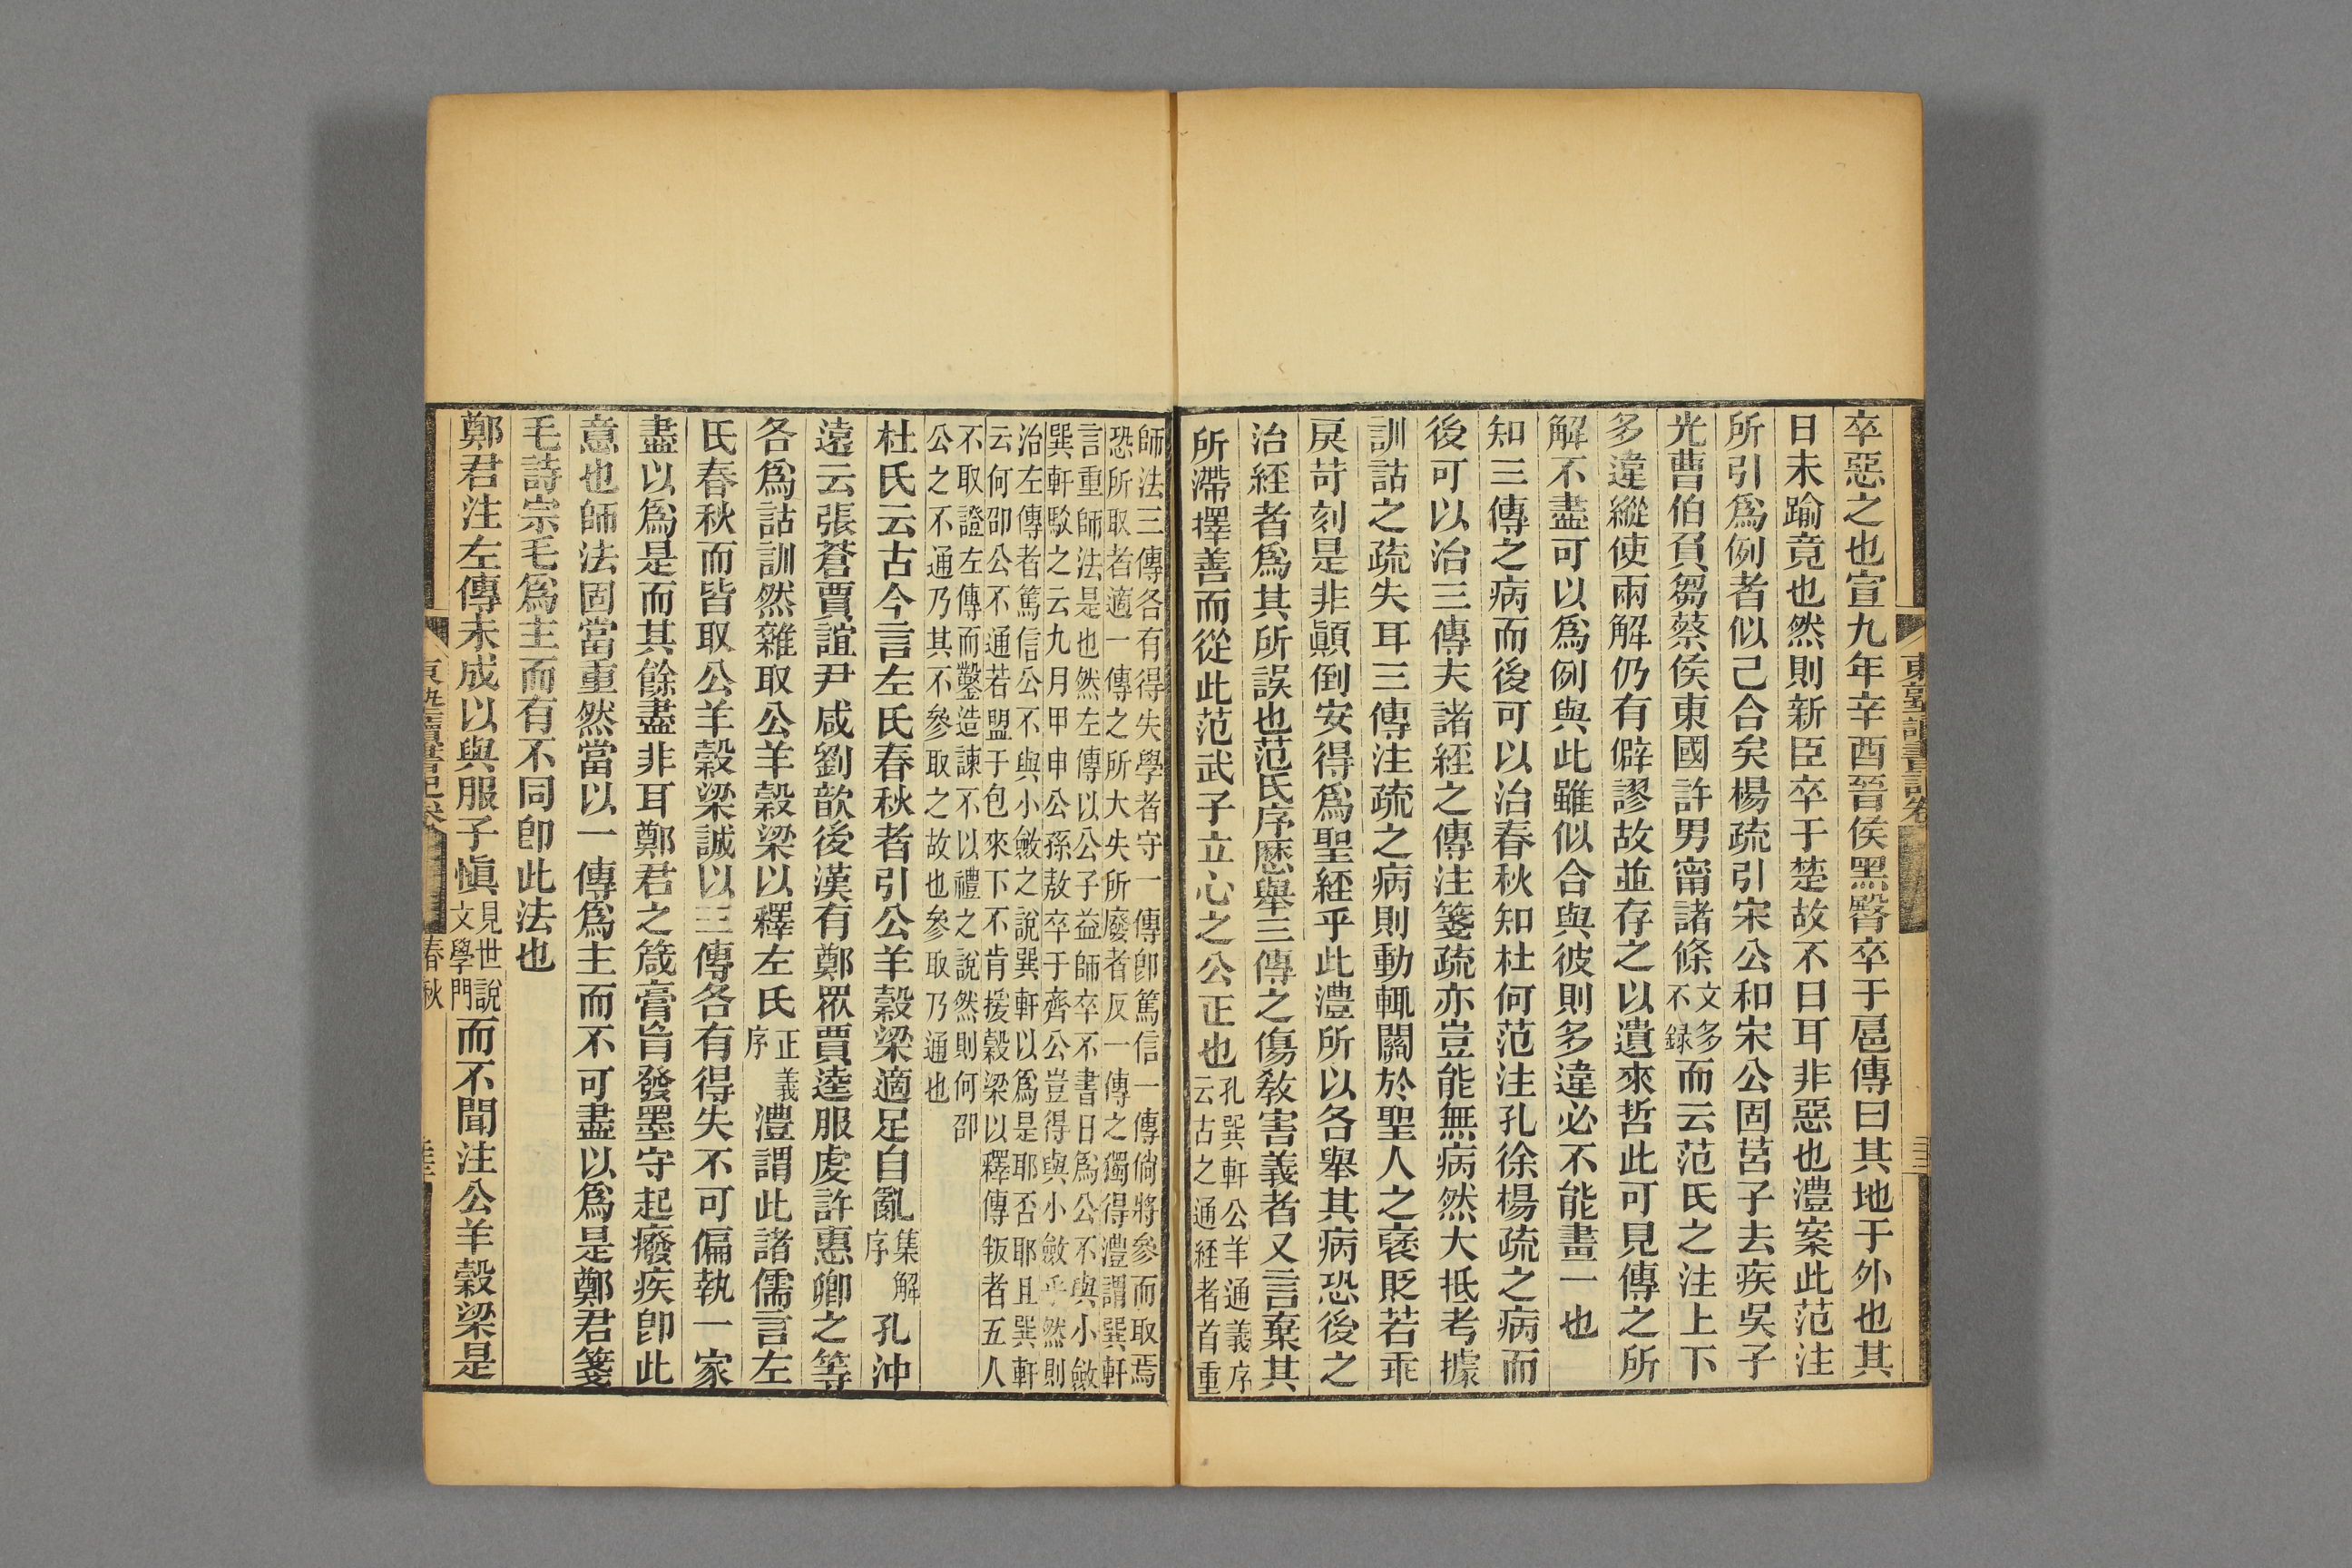 卒惡之也宣九年辛酉晉侯黑臀卒于扈傳曰其地于外也其
日未踰竟也然則新臣卒于楚故不日耳非惡也澧案此范注
所引爲例者似己合矣楊疏引宋公和宋公固莒子去疾吳子
光曹伯負芻蔡侯東國許男甯諸條文多不録而云范氏之注上下
多違縱使兩解仍有僻謬故並存之以遺來哲此可見傳之所
解不盡可以爲例與此雖似合與彼則多違必不能畫一也
知三傳之病而後可以治春秋知杜何范注孔徐楊疏之病而
後可以治三傳夫諸經之傳注箋疏亦豈能無病然大抵考據
訓詁之疏失耳三傳注疏之病則動輒關於聖人之襃貶若乖
戾苛刻是非顚倒安得爲聖經乎此澧所以各舉其病恐後之
治經者爲其所誤也范氏序歷舉三傳之傷敎害義者又言棄其
所滯擇善而從此范武子立心之公正也孔巽軒公羊通義序云古之通經者首重
師法三傳各有得失學者守一傳卽篤信一傳倘將參而取焉
恐所取者適一傳之所大失所廢者反一傳之獨得澧謂巽軒
言重師法是也然左傳以公子益師卒不書日爲公不與小斂
巽軒駮之云九月甲申公孫敖卒于齊公豈得與小斂乎然則
治左傳者篤信公不與小斂之說巽軒以爲是耶否耶且巽軒
云何卲公不通若盟于包來下不肯援穀梁以釋傳叛者五人
不取證左傳而鑿造諫不以禮之說然則何卲
公之不通乃其不參取之故也參取乃通也
杜氏云古今言左氏春秋者引公羊穀梁適足自亂集解序孔沖
遠云張蒼賈誼尹咸劉歆後漢有鄭眾賈逵服虔許惠卿之等
各爲詁訓然雜取公羊穀梁以釋左氏正義序澧謂此諸儒言左
氏春秋而皆取公羊穀梁誠以三傳各有得失不可偏執一家
盡以爲是而其餘盡非耳鄭君之箴膏肓發墨守起癈疾卽此
意也師法固當重然當以一傳爲主而不可盡以爲是鄭君箋
毛詩宗毛爲主而有不同卽此法也
鄭君注左傳未成以與服子愼見世說文學門而不聞注公羊穀梁是
東塾讀書記卷
春秋